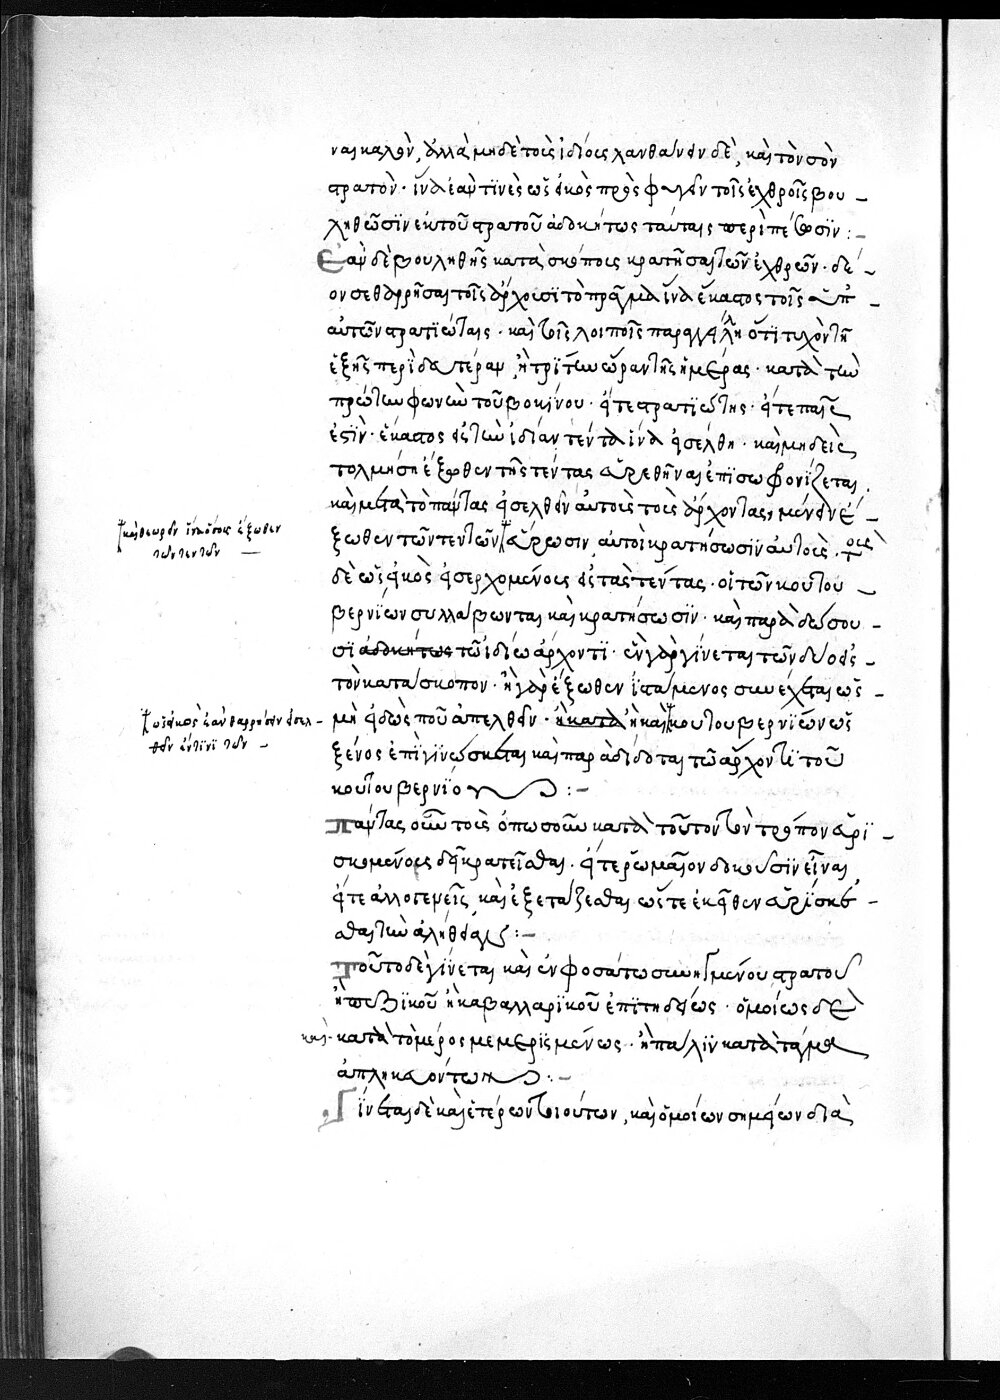 ναι καλὸν, ἀλλὰ μηδὲ τοὺς ἰδίους λανθάνειν δὲ, καὶ τὸν σὸν
στρατὸν· ἵνα ἐάν τινες ὡς εἰκὸς πρὸς φυγεῖν τοῖς ἐχθροῖς βου
ληθῶσιν ἐκ τοῦ στρατοῦ ἀδοκήτως ταύταις περιπέσωσιν :-
Ἐὰν δὲ βουληθῇς κατασκόπους κρατῆσαι τῶν ἐχθρῶν· δέ
ον σε θαρρῆσαι τοῖς ἄρχουσι τὸ πρᾶγμα ἵνα ἕκαστος τοῖς ὑπ
αὐτῶν στρατιώταις· καὶ τοῖς λοιποῖς παραγγείλῃ ὅτι τυχὸν τῇ
ἑξῆς περὶ δευτέραν ἢ τρίτην ὥραν τῆς ἡμέρας· κατὰ τὴν
πρώτην φωνὴν τοῦ βουκίνου· εἴτε στρατιώτης· εἴτε παῖς
ἐστὶν· ἕκαστος εἰς τὴν ἰδίαν τένταν ἵνα εἰσέλθῃ· καὶ μηδεὶς
τολμήσῃ ἔξωθεν τῆς τέντας εὑρεθῆναι ἐπεὶ σωφρονίζεται
καὶ μετὰ τὸ πάντας εἰσελθεῖν αὐτοὺς τοὺς ἄρχοντας, μένειν ἔ
ξωθεν τῶν τεντῶν εὕρωσιν αὐτοὶ κρατήσωσιν αὐτοὺς. οὓς
δὲ ὡς εἰκὸς εἰσερχομένους εἰς τὰς τέντας· οἱ τῶν κουτου
βερνίων συλλάβωνται καὶ κρατήσωσιν· καὶ παραδώσου
σι ἀδοκήτως τῷ ἰδίῳ ἄρχοντι· ἓν γὰρ γίνεται τῶν δύο εἰς
τὸν κατάσκοπον· ἢ γὰρ ἔξωθεν ἱστάμενος συνέχεται ὡς
μὴ εἰδὼς ποῦ ἀπελθεῖν· ἢ κατὰ ἢ καὶ κουτουβερνίων ὡς
ξένος ἐπιγινώσκεται καὶ παραδίδοται τῷ ἄρχοντι τοῦ
κουτουβερνίου :-
Πάντας οὖν τοὺς ὁπωσοῦν κατὰ τοῦτον τὸν τρόπον εὑρι
σκομένους δεῖ κρατεῖσθαι· εἴτε ῥωμαῖον δοκοῦσιν εἶναι
εἴτε ἀλλογενεῖς, καὶ ἐξετάζεσθαι ὥστε ἐκεῖθεν εὑρίσκε
σθαι τὴν ἀλήθειαν :-
Τοῦτο δὲ γίνεται καὶ ἐν φοσάτῳ συνηγμένου στρατοῦ
ἢ πεζικοῦ ἢ καβαλλαρικοῦ ἐπιτηδείως· ὁμοίως δὲ
καὶ· κατὰ τὸ μέρος μεμερισμένως· ἢ πάλιν κατὰ τάγμα
ἀπληκευόντων :-
Γίνεται δὲ καὶ ἑτέρων τοιούτων, καὶ ὁμοίων σημείων διὰ
καὶ θεωρεῖν ἵνα ὅσους ἔξωθεν
τῶν τεντῶν
ὡς εἰκὸς ἐὰν θαρρήσῃ εἰσελ
θεῖν ἔν τινι τῶν